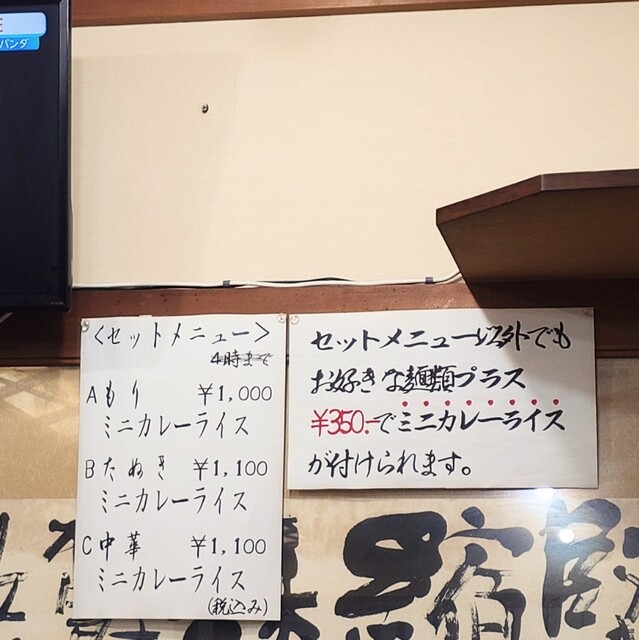 パンダ
<セットメニュー>
4時まで
Aもり ¥1,000
ミニカレーライス
Bたぬき ¥1,100
ミニカレーライス
C中華 ¥1,100
ミニカレーライス
(税込み)
セットメニュー以外でも
お好きな麺類プラス
¥350.-でミニカレーライス
が付けられます。